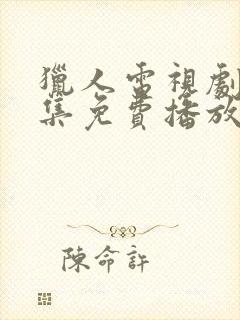 獵人電視劇
集免費播放
陳命許